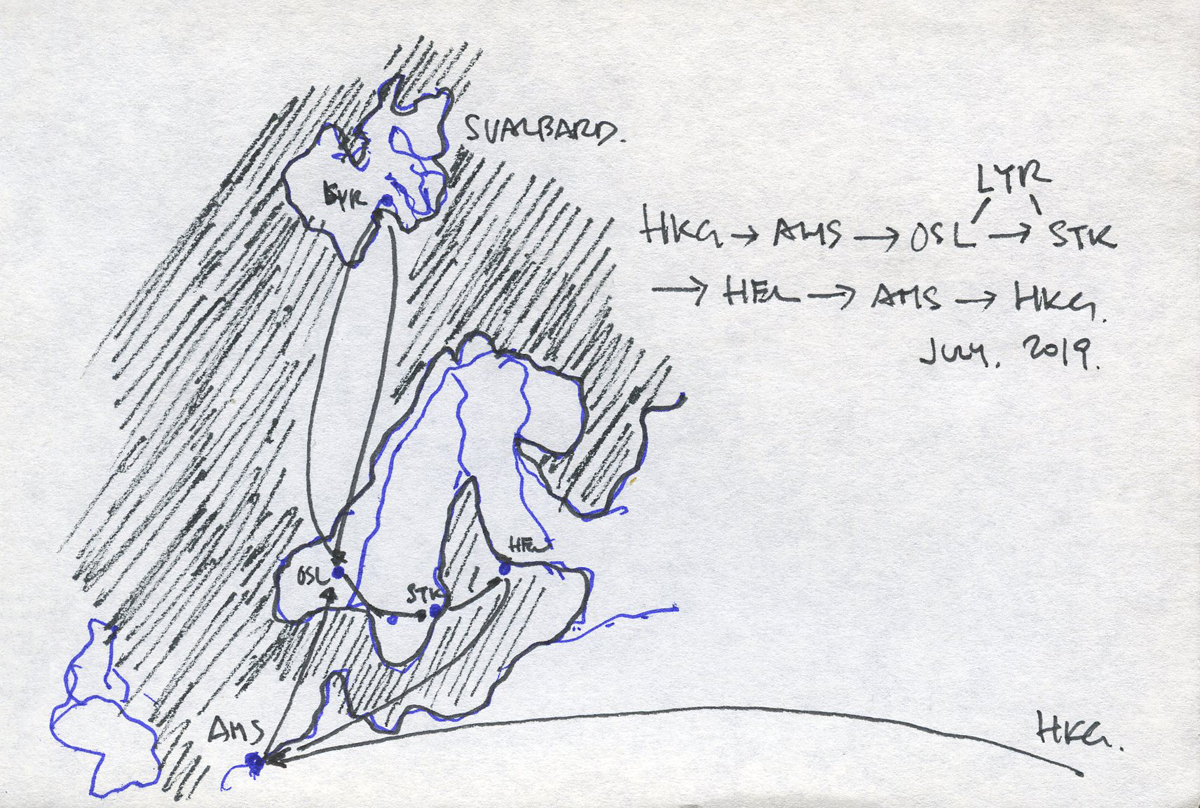 SVALBARD.
LYR
LYR
HKG → AMS → OSL → STK
→ HEL → AMS → HKG.
JULY, 2019.
HEL
OSL
STK
AMS
HKG.